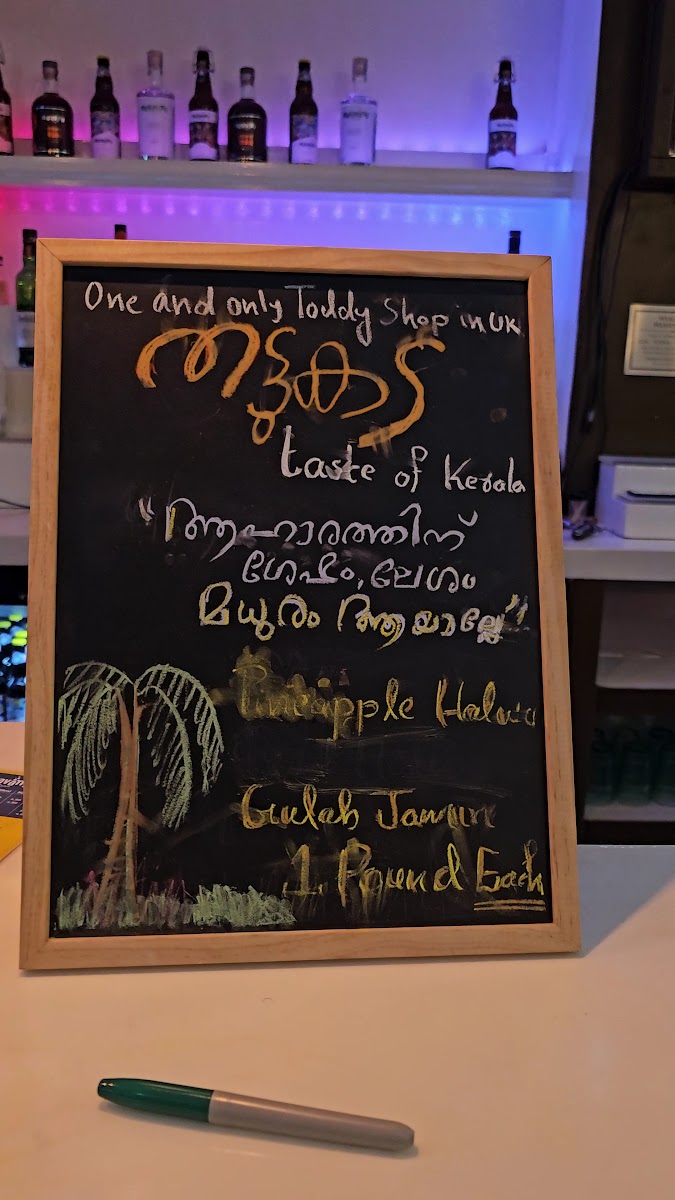 One and only Toddy Shop in UK
തട്ടുകട
taste of Kerala
"ആഹാരത്തിന്
ശേഷം, ലേശം
മധുരം ആയാല്ലേ"
Pineapple Halwa
Gulab Jamun
1 Pound Each